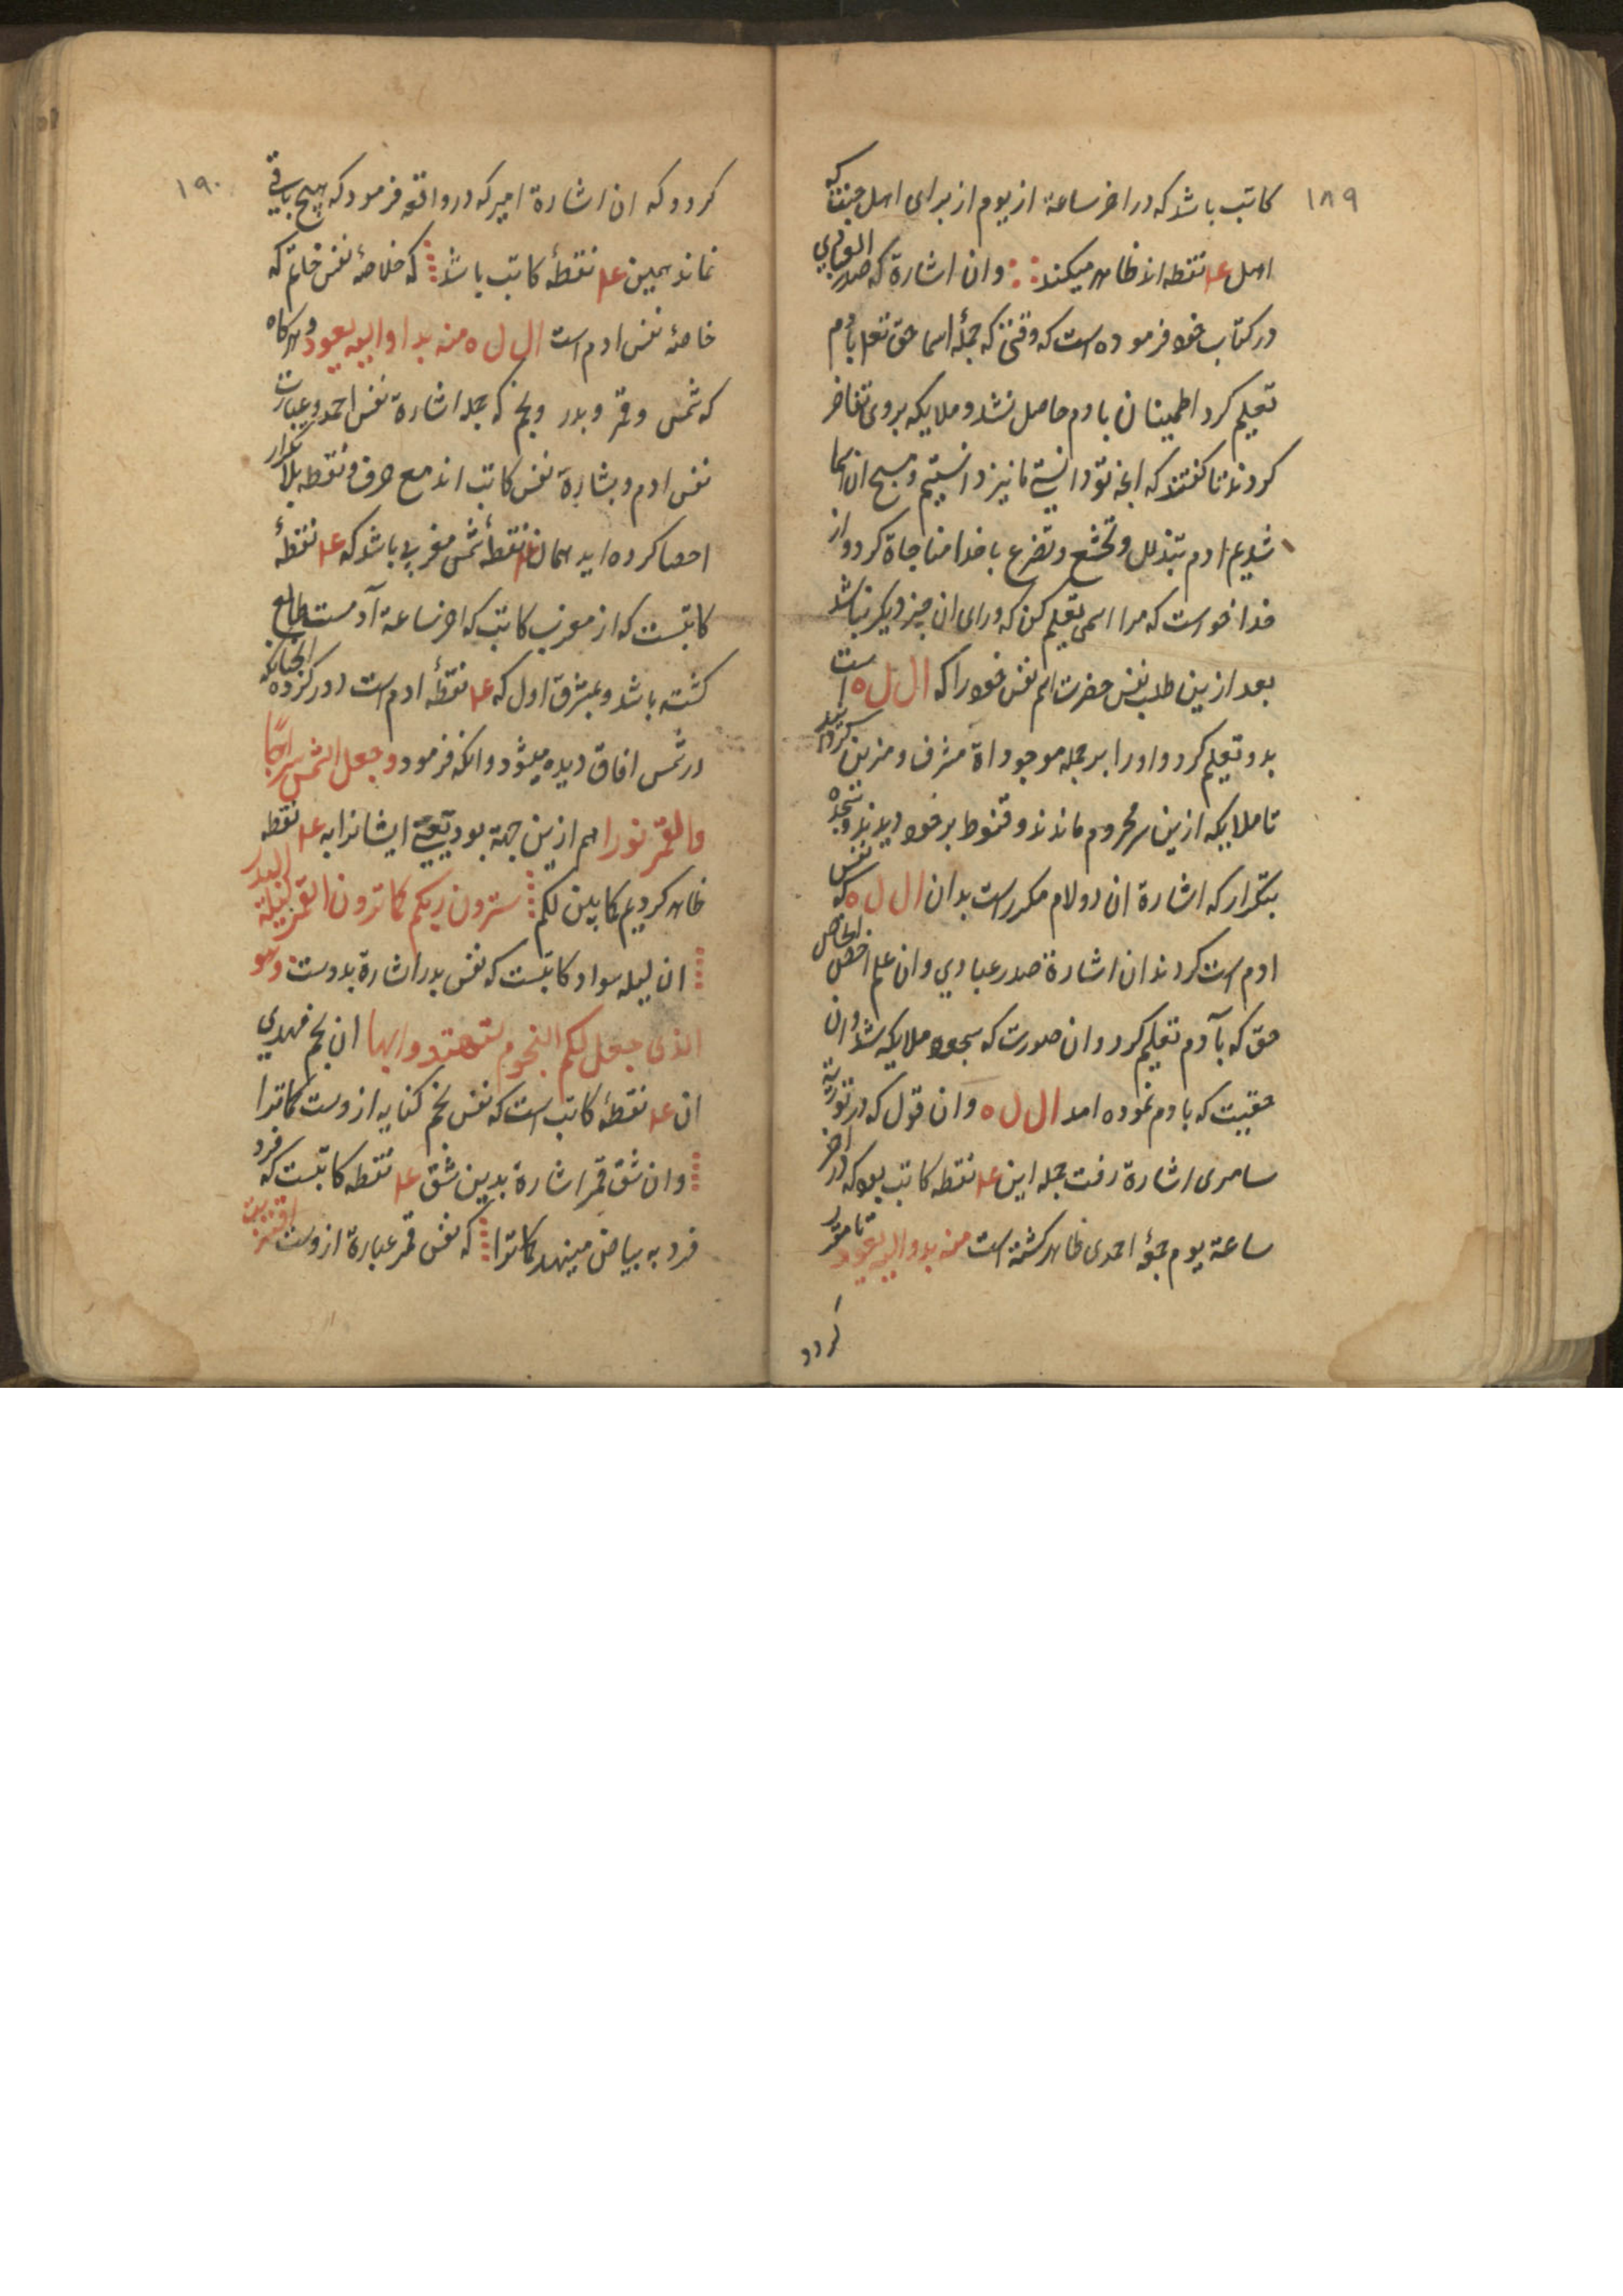 ۱۸۹
کاتب باشد که در اخر ساعة از یوم از برای اهل جنت که
اهل ۴ا نقطه اند ظاهر میکند وان اشارة که صدر العبادي
در کتاب خود فرموده است که وقتی که جملهٔ اسما حق تعلی بادم
تعلیم کرد اطمینان بادم حاصل نشد و ملایکه بروی تفاخر
کردند تا کفتند که انچه تو دانستی ما نیز دانستیم و مسبح ان اسما
شدیم ادم بتذلل و تخشع و تضرع با خدا مناجاة کرد و از
خدا خواست که مرا اسمی تعلیم کن که ورای ان چیز دیکر نباشد
بعد ازین طلب نفس حضرت اسم نفس خود را که ال ل ه است
بدو تعلیم کرد و او را بر جمله موجوداة مشرف و مزین کردانید
تا ملایکه ازین سر محروم ماندند و قنوط بر خود دیدند و سجده
بتکرار که اشارة ان دو لام مکرر است بدان ال ل ه که نفس
ادم است کردند ان اشارة صدر عبادي وان علم اخص الخاص
حق که بآدم تعلیم کرد وان صورت که مسجود ملایکه شد وان
حقیت که بادم نموده امد ال ل ه وان قول که در توریة
سامری اشارة رفت جمله این ۴ا نقطه کاتب بود که در اخر
ساعة یوم جمعهٔ احمدی ظاهر کشته است منه بدو الیه یعود تا مقرر
کردد
۱۹۰
کردد که ان اشارة امیر که در واقعه فرمود که هیچ باقی
نماند همین ۴ا نقطهٔ کاتب باشد که خلاصهٔ نفس خاتم که
خاصهٔ نفس ادم است ال ل ه منه بدا والیه یعود و هر کاه
که شمس و قمر و بدر و نجم که جمله اشارة نفس احمد و عبارت
نفس ادم و بشارة نفس کاتب اند مع حرف و نقطه بلا تکرار
احصا کرده اید همان ۴ا نقطهٔ شمس مغربی باشد که ۴ا نقطهٔ
کاتبست که از مغرب کاتب که اخر ساعة آدمست طالع
کشته باشد و بمشرق اول که ۴ا نقطهٔ ادم است دور کرده چنانکه
در شمس افاق دیده میشود وانکه فرمود وجعل الشمس سراجًا
والقمر نورا هم ازین جهة بود یعنی ایشانرا به ۴ا نقطه
ظاهر کردیم کما بین لکم سترون ربکم کما ترون القمر لیلة البدر
ان لیله سواد کاتبست که نفس بدر اشارة بدوست وهو
الذی جعل لکم النجوم لتهتدوا بها ان نجم مهدي
ان ۴ا نقطهٔ کاتب است که نفس نجم کنایه ازوست کما ترا
وان شق قمر اشارة بدین شق ۴ا نقطه کاتبست که فرد
فرد به بیاض مینهد کما ترا که نفس قمر عبارة ازوست اقتربت